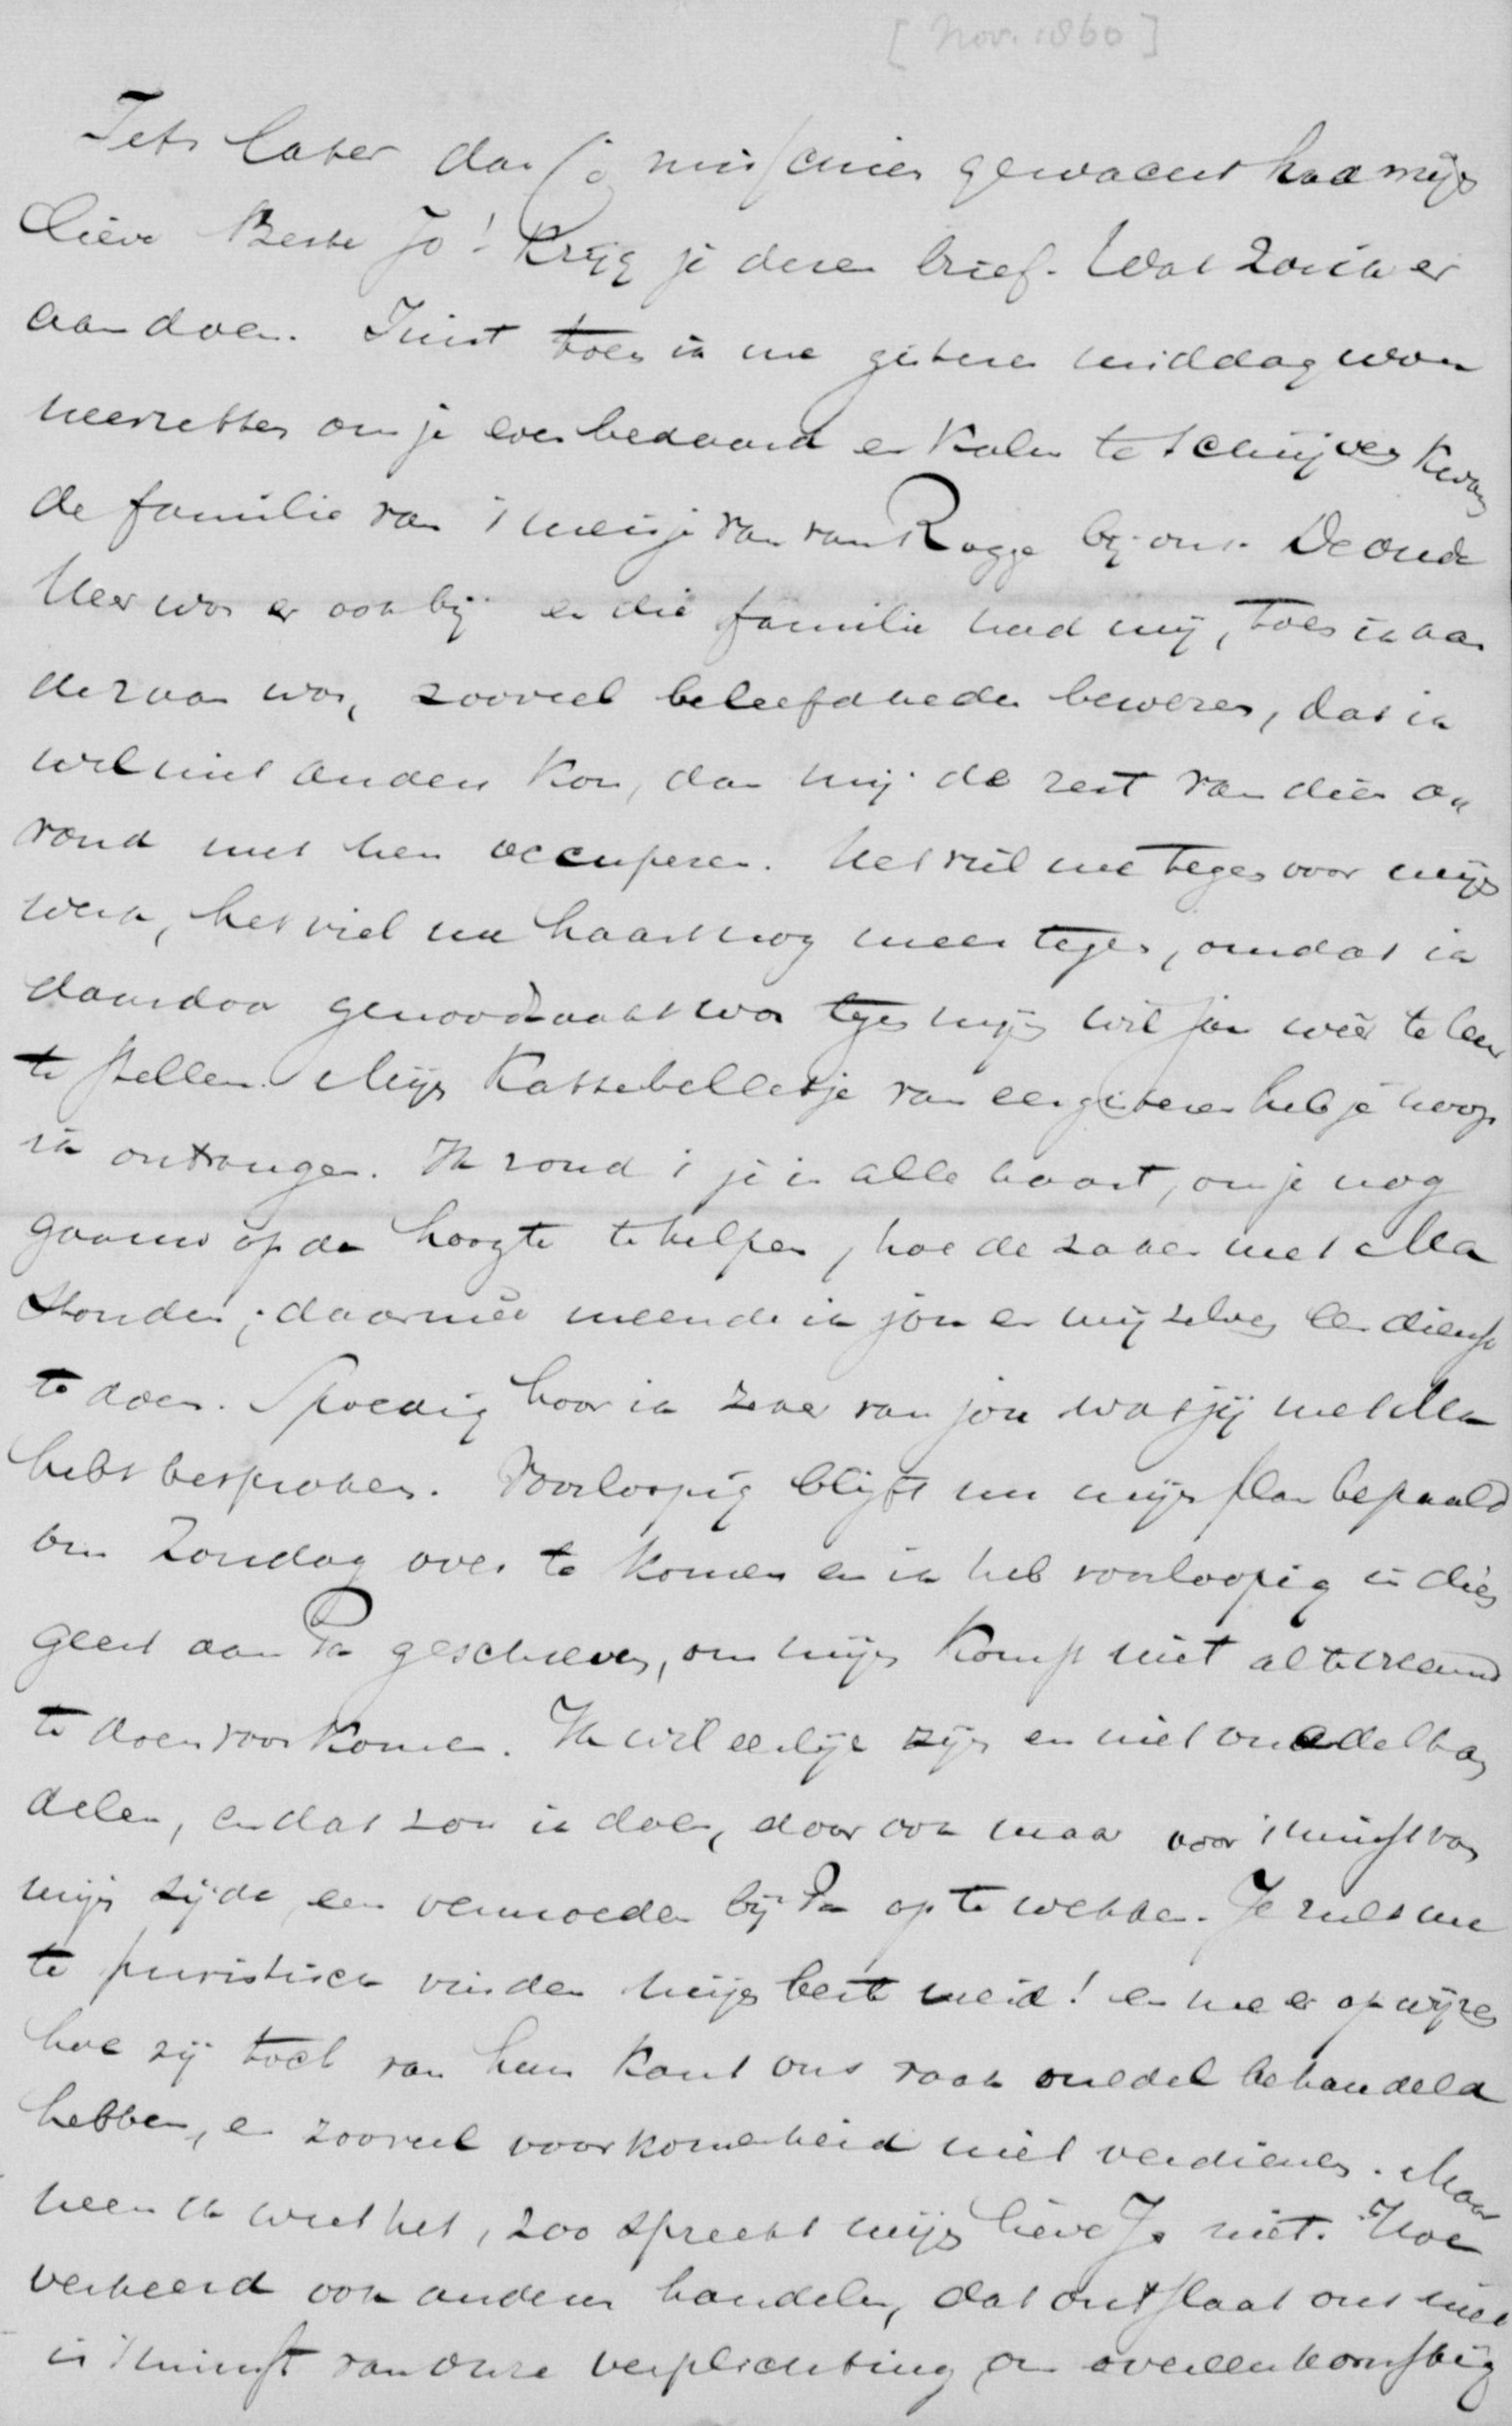 [Nov. 1860]
Iets later dan jij misschien gewacht had mijn
lieve Beste Jo! krijg je dezen brief. Wat zou ik er
aan doen. Juist toen ik me gisteren middag wou
neerzetten om je even bedaard en kalm te schrijven kwam
de familie van 't meisje van van Rogge bij ons. De oude
Heer was er ook bij en die familie had mij, toen ik aan
de Zaan was, zooveel beleefdheden bewezen, dat ik
wel niet anders kon, dan mij de rest van dien a-
vond met hen occuperen. Het viel me tegen voor mijn
werk, het viel me haast nog meer tegen, omdat ik
daardoor genoodzaakt was tegen mijn wil jou weêr te leur
te stellen. Mijn Kattebelletje van eergisteren heb je hoop
ik ontvangen. Ik zond 't je in alle haast, om je nog
gaauw op de hoogte te helpen, hoe de zaken met Ma
stonden; daarmêe meende ik jou en mijzelven een dienst
te doen. Spoedig hoor ik zeker van jou wat jij met Ma
hebt besproken. Voorloopig blijft nu mijn plan bepaald
om Zondag over te komen en ik heb voorloopig in dien
geest aan Pa geschreven, om mijn komst niet al te vreemd
te doen voorkomen. Ik wil eerlijk zijn en niet onedel han
delen, en dat zou ik doen, door ook maar voor 't minst van
mijn zijde, een vermoeden bij Pa op te wekken. Je zult me
te puristisch vinden mijn beste meid! en me er op wijzen
hoe zij toch van hun kant ons vaak onedel behandeld
hebben, en zooveel voorkomenheid niet verdienen. Maar
neen ik weet het, zoo spreekt mijn lieve Jo niet. Hoe
verkeerd ook anderen handelen, dat ontslaat ons niet
in 't minst van onze verplichting om overeenkomstig